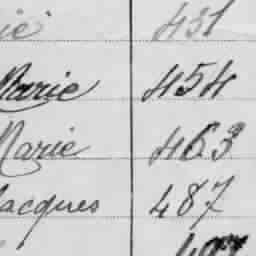 431
Marie 454
Marie 463
Jacques 487